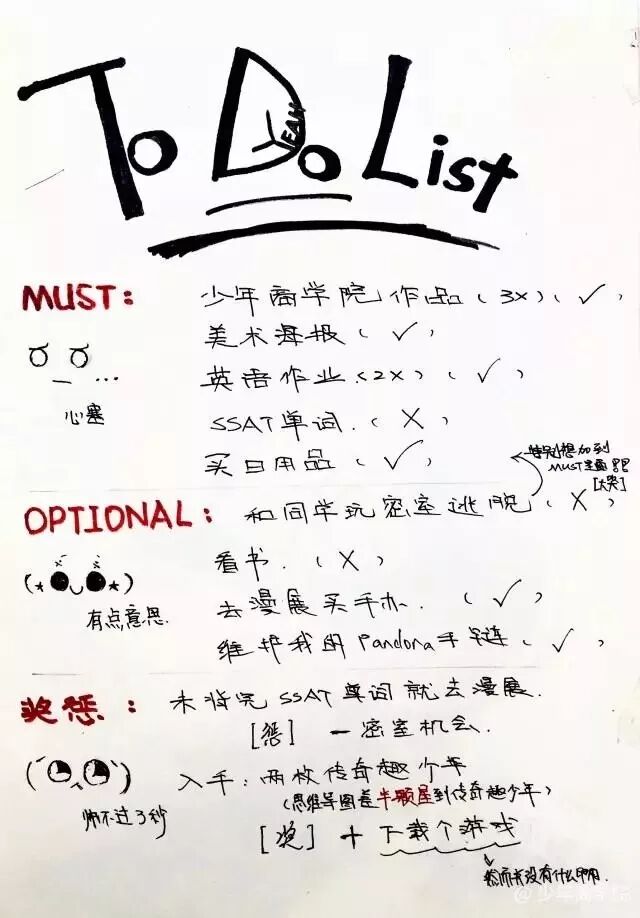 To Do List
YEAH
MUST:
少年商学院作品(3x)(✓)
美术海报(✓)
英语作业(2x)(✓)
SSAT单词.(X)
买日用品(✓)
心塞
特别想加到
MUST里面
[大哭]
OPTIONAL:
和同学玩密室逃脱(X)
看书.(X)
去漫展买手办.(✓)
维护我的Pandona手链(✓)
有点意思.
奖惩:
未背完SSAT单词就去漫展.
[惩] 一密室机会.
入手:两枚传奇趣少年
(思维导图差半颗星到传奇趣少年)
[奖] + 下载个游戏
帅不过3秒
然而并没有什么用.
@少年商学院